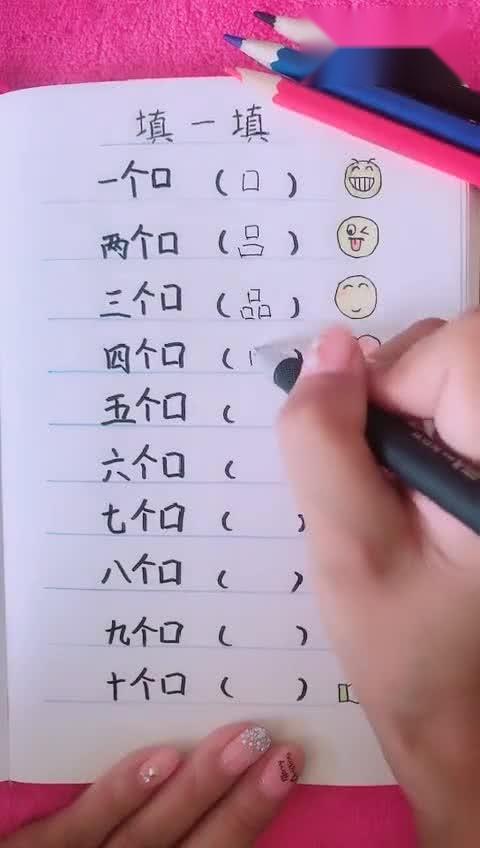 填一填
一个口 ( 口 )
两个口 ( 吕 )
三个口 ( 品 )
四个口 ( )
五个口 (
六个口 (
七个口 ( )
八个口 ( )
九个口 ( )
十个口 ( )